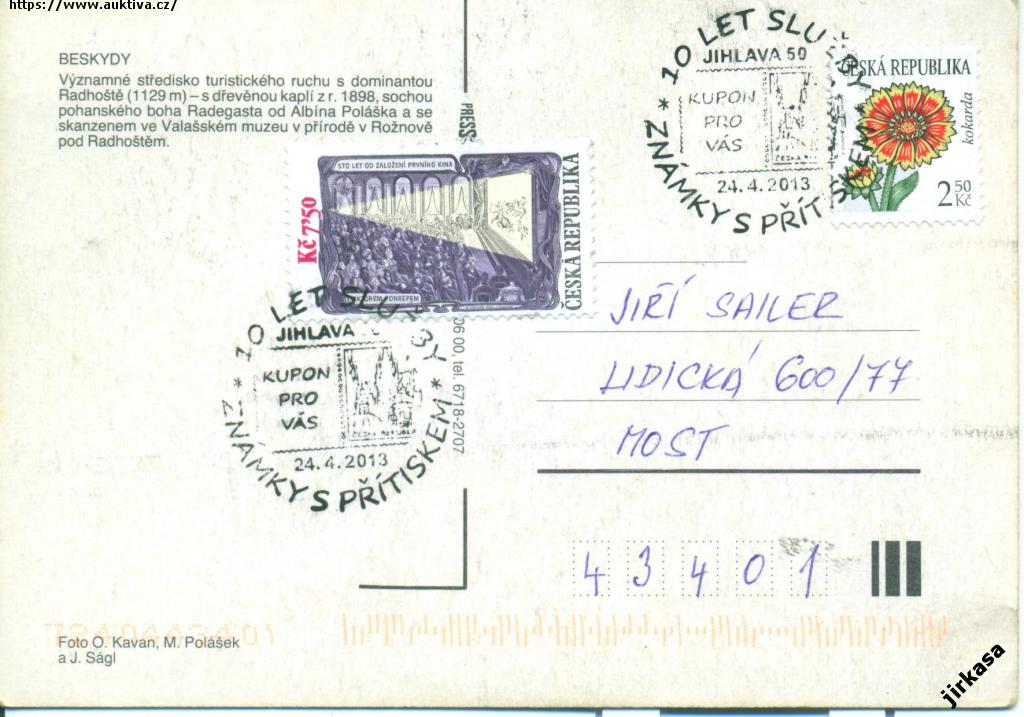 https://www.auktiva.cz/
BESKYDY
Významné středisko turistického ruchu s dominantou
Radhoště (1129 m) – s dřevěnou kaplí z r. 1898, sochou
pohanského boha Radegasta od Albína Poláška a se
skanzenem ve Valašském muzeu v přírodě v Rožnově
pod Radhoštěm.
PRESS
10 LET SLUŽBY
JIHLAVA 50
KUPON
PRO
VÁS
24.4.2013
* ZNÁMKY S PŘÍTISKEM *
ČESKÁ REPUBLIKA
kokarda
2 50
Kč
STO LET OD ZALOŽENÍ PRVNÍHO KINA
Kč 7'50
ČESKÁ REPUBLIKA
VIKTOREM PONREPEM
10 LET SLUŽBY
JIHLAVA
KUPON
PRO
VÁS
ČESKÁ REPUBLIKA
24.4.2013
* ZNÁMKY S PŘÍTISKEM *
0600, tel. 6718-2707
JIŘÍ SAILER
LIDICKÁ 600/77
MOST
43401
Foto O. Kavan, M. Polášek
a J. Ságl
jirkasa